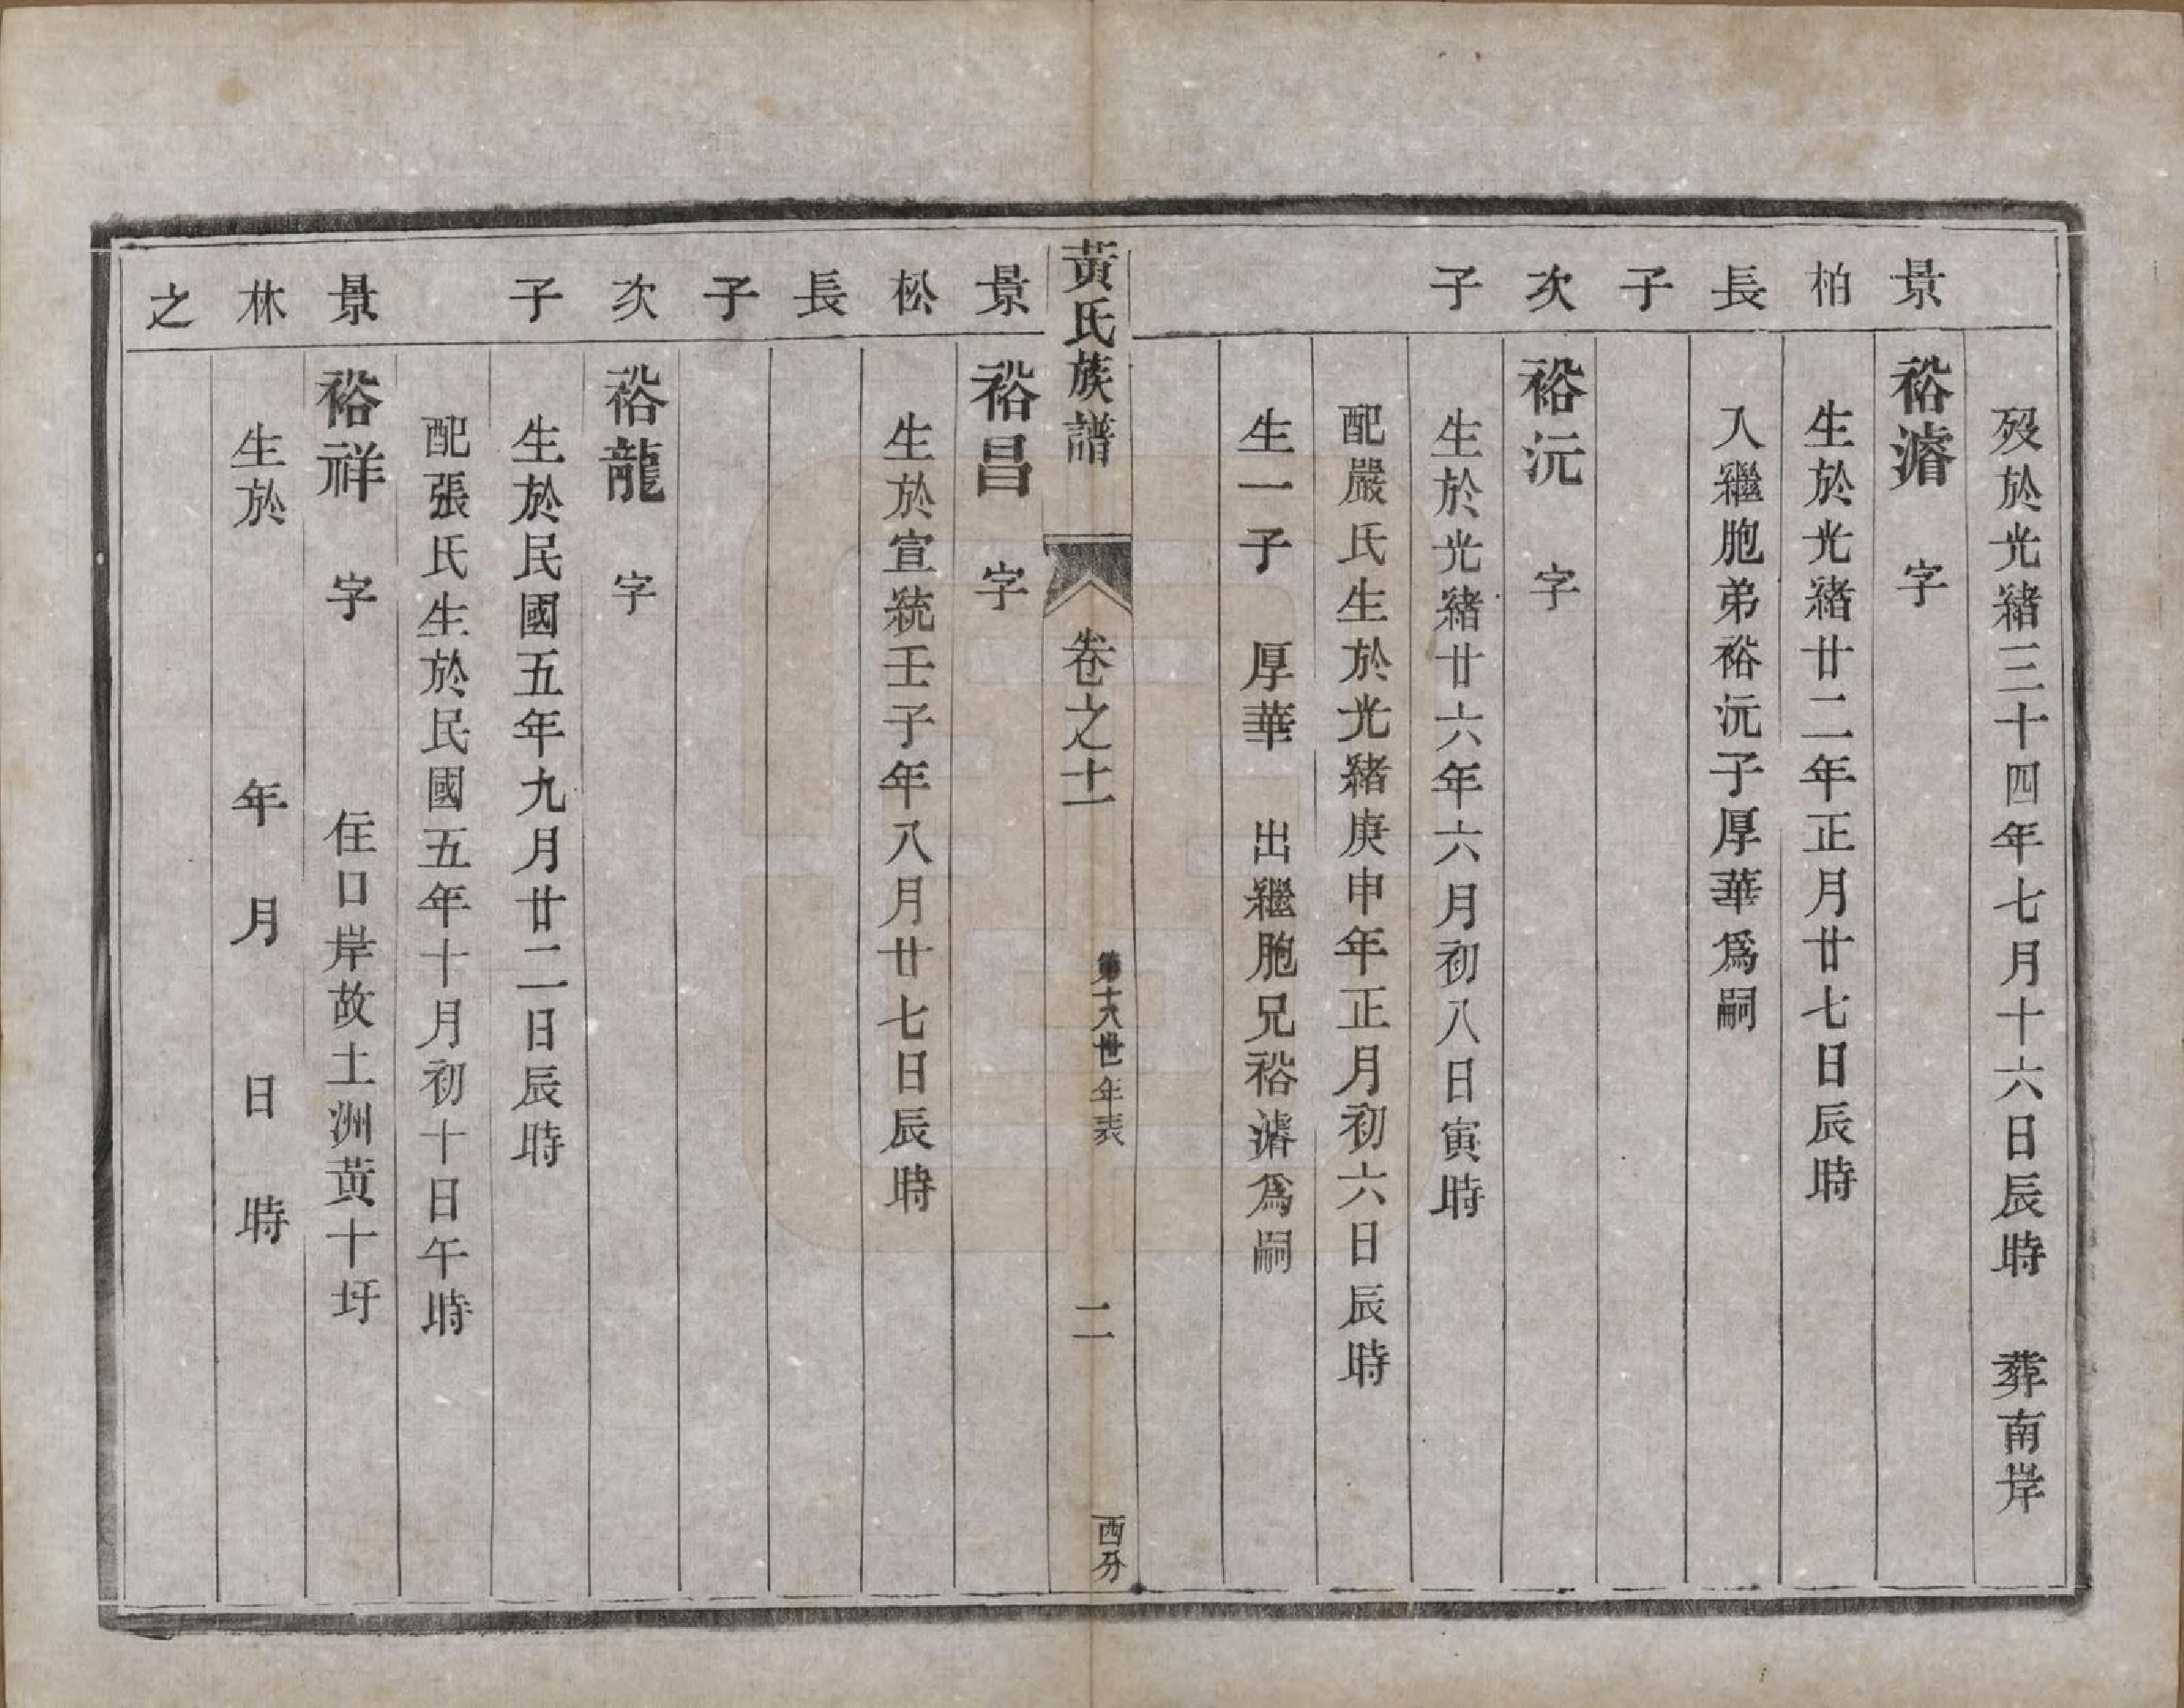 歿於光緒三十四年七月十六日辰時 葬南岸
景 裕濬 字
柏 生於光緒廿二年正月廿七日辰時
長 入繼胞弟裕沅子厚華爲嗣
子
次 裕沅 字
子 生於光緒廿六年六月初八日寅時
配嚴氏生於光緒庚申年正月初六日辰時
生一子 厚華 出繼胞兄裕濬爲嗣
黃氏族譜 卷之十一 第十八世年表 二 西分
景 裕昌 字
松 生於宣統壬子年八月廿七日辰時
長
子
次 裕龍 字
子 生於民國五年九月廿二日辰時
配張氏生於民國五年十月初十日午時
景 裕祥 字 住口岸故土洲黃十圩
林 生於 年 月 日 時
之